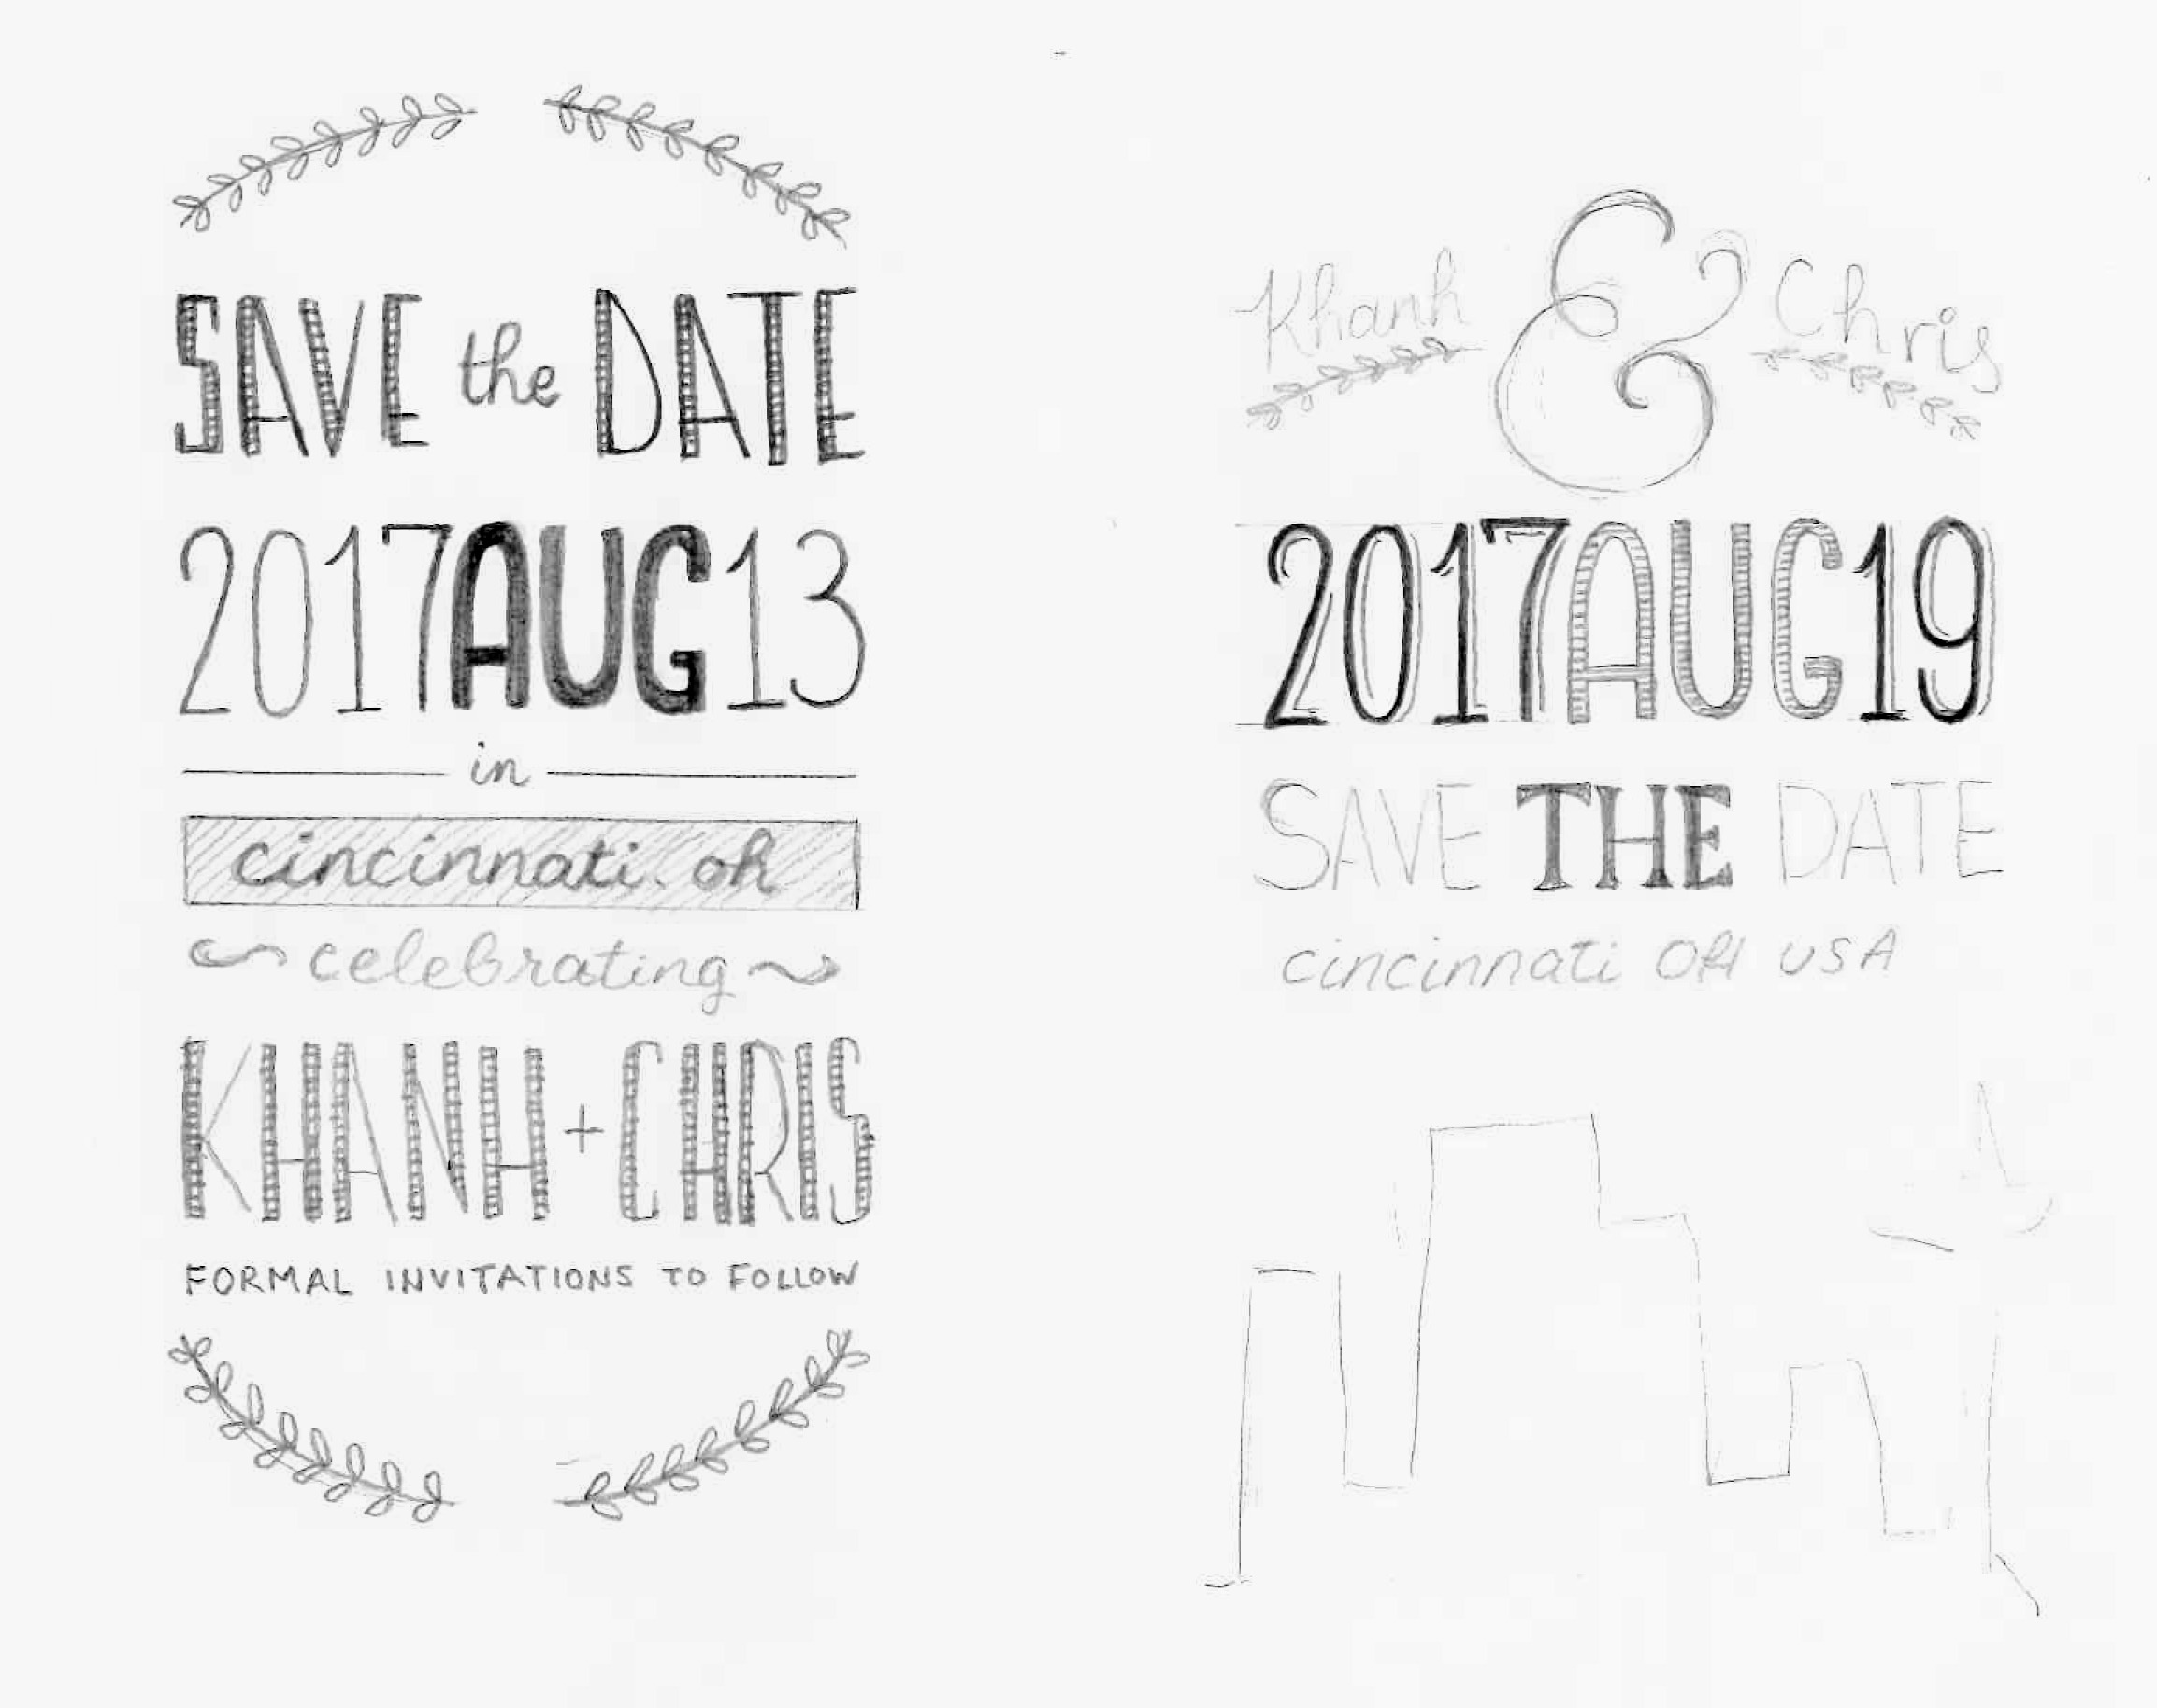 SAVE the DATE
2017AUG13
in
cincinnati. oh
celebrating
KHANH + CHRIS
FORMAL INVITATIONS TO FOLLOW
Khanh & Chris
2017AUG19
SAVE THE DATE
cincinnati OH USA